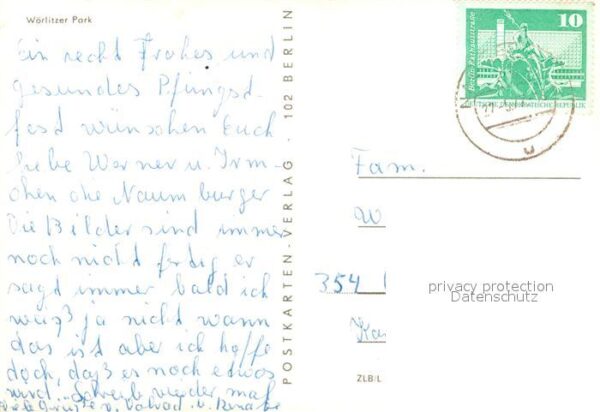 Wörlitzer Park
Ein recht Frohes und
gesundes Pfingst-
fest wünschen Euch
liebe Werner u. Irm-
chen die Naumburger
Die Bilder sind immer
noch nicht fertig er
sagt immer bald ich
weiß ja nicht wann
das ist aber ich hoffe
doch, daß er noch etwas
wird. Schreib wieder mal
Viele Grüße v. u. Renate
POSTKARTEN-VERLAG · 102 BERLIN
10
Berlin, Rathausstraße
DEUTSCHE DEMOKRATISCHE REPUBLIK
Fam.
W
354
privacy protection
Datenschutz
Ka
ZLB/L